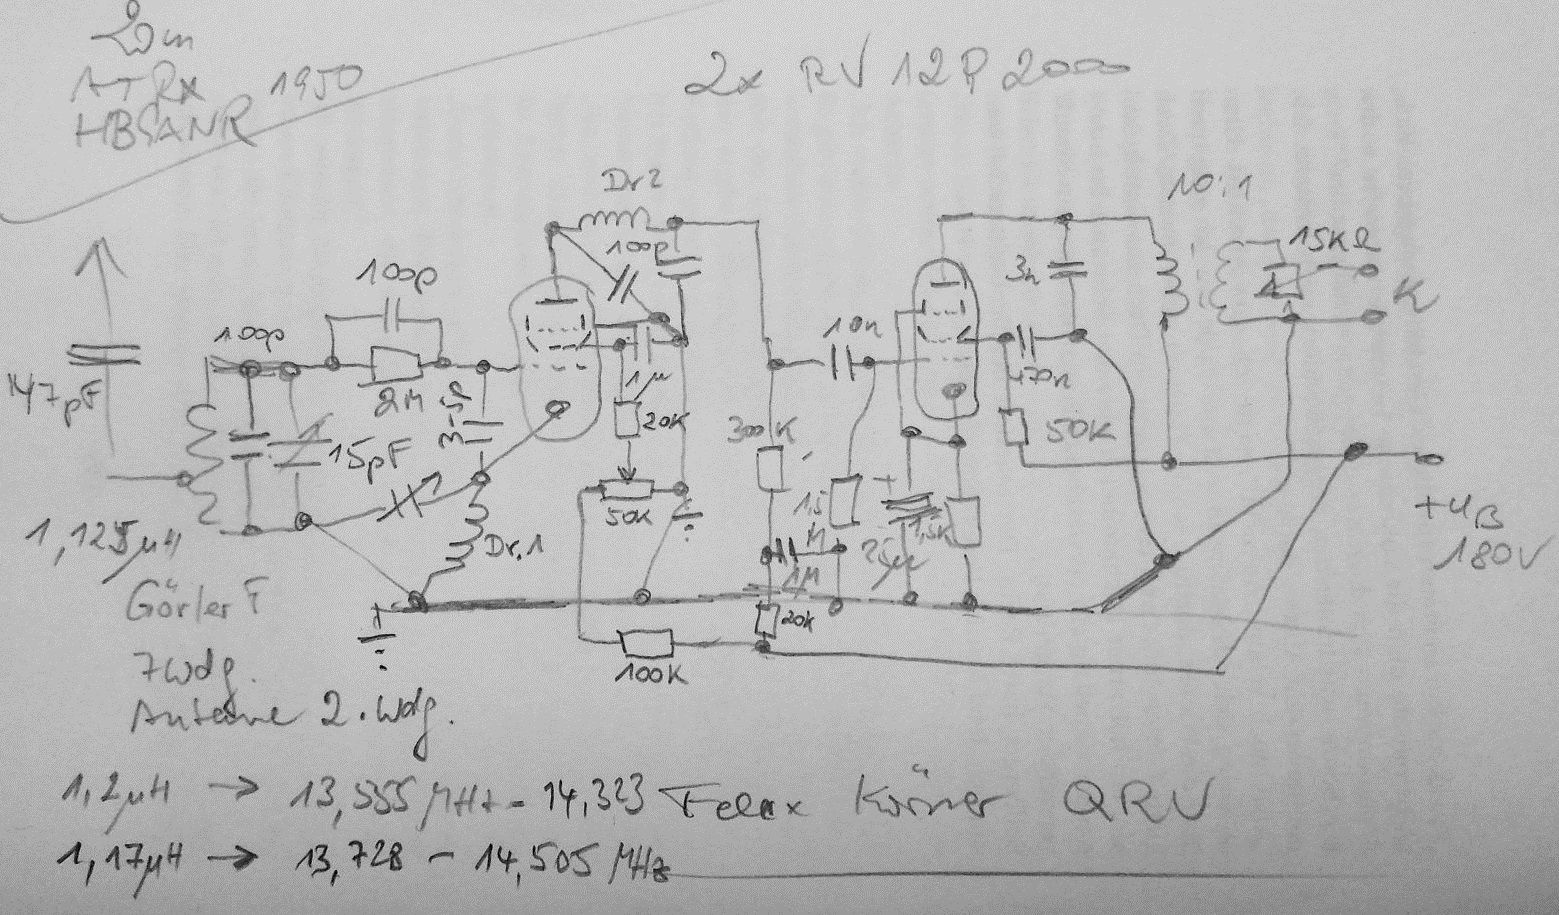 20m
ATRX 1950
HB9ANR
2x RV 12P 2000
Dr2
10:1
100p
15KΩ
100p
3n
K
100p
10n
47pF
1µ
470n
2M
20K
300K
50K
15pF
50K
1,5
M
1,5K
+UB
180V
1,125µH
Dr.1
25µ
1M
Görler F
20K
7Wdg.
100K
Antenne 2.Wdg.
1,2µH → 13,555 MHz - 14,323 Felix Körner QRV
1,17µH → 13,728 - 14,505 MHz